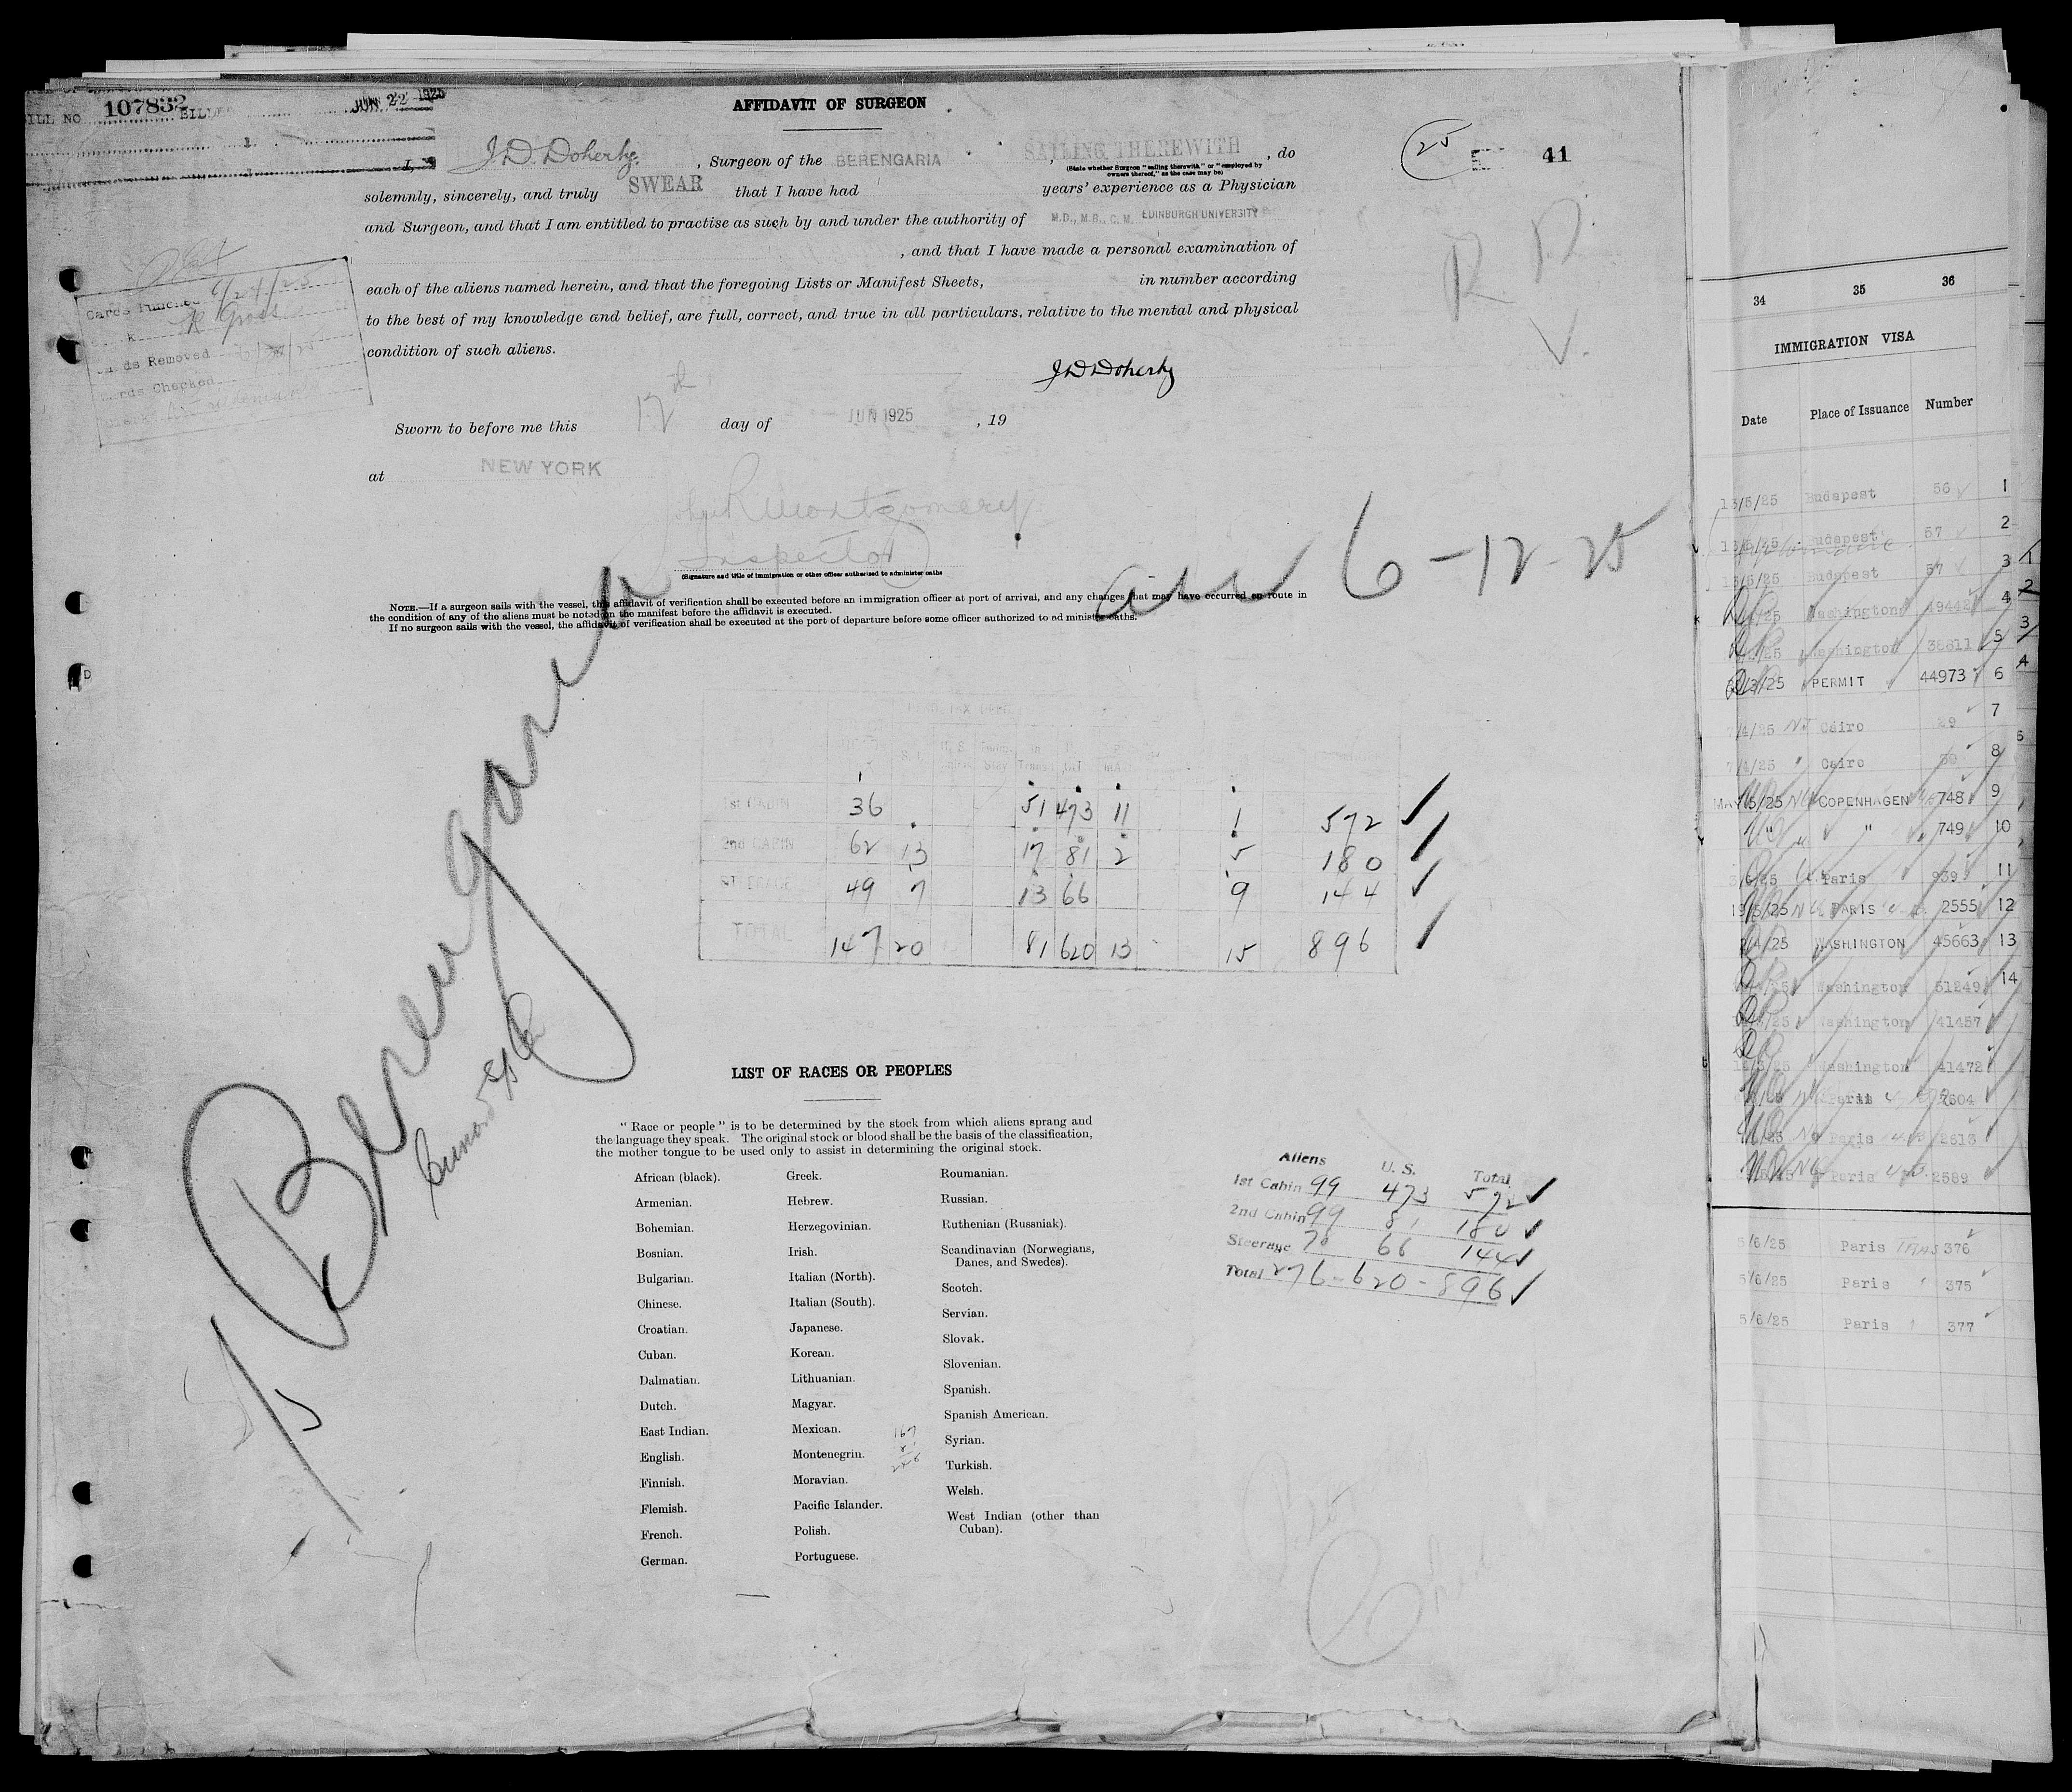 BILL NO 107832 BILL
JUN 22 1925
AFFIDAVIT OF SURGEON
I, J. D. Doherty, Surgeon of the BERENGARIA, SAILING THEREWITH, do
(State whether Surgeon "sailing therewith" or "employed by
owners thereof," as the case may be)
25
41
solemnly, sincerely, and truly SWEAR that I have had years' experience as a Physician
and Surgeon, and that I am entitled to practise as such by and under the authority of M.D., M.B., C.M. EDINBURGH UNIVERSITY
, and that I have made a personal examination of
each of the aliens named herein, and that the foregoing Lists or Manifest Sheets, in number according
to the best of my knowledge and belief, are full, correct, and true in all particulars, relative to the mental and physical
condition of such aliens.
J D Doherty
Cards Punched
Cards Removed
Cards Checked
Sworn to before me this 12th day of JUN 1925, 19
at NEW YORK
R Montgomery
Inspector
(Signature and title of immigration or other officer authorized to administer oaths
6-12-25
NOTE.—If a surgeon sails with the vessel, this affidavit of verification shall be executed before an immigration officer at port of arrival, and any changes that may have occurred en route in
the condition of any of the aliens must be noted on the manifest before the affidavit is executed.
If no surgeon sails with the vessel, the affidavit of verification shall be executed at the port of departure before some officer authorized to administer oaths.
Berengaria
1st CABIN 36 51 473 11 1 572
2nd CABIN 62 13 17 81 2 5 180
STEERAGE 49 7 13 66 9 144
TOTAL 147 20 81 620 13 15 896
LIST OF RACES OR PEOPLES
"Race or people" is to be determined by the stock from which aliens sprang and
the language they speak. The original stock or blood shall be the basis of the classification,
the mother tongue to be used only to assist in determining the original stock.
African (black).
Armenian.
Bohemian.
Bosnian.
Bulgarian.
Chinese.
Croatian.
Cuban.
Dalmatian.
Dutch.
East Indian.
English.
Finnish.
Flemish.
French.
German.
Greek.
Hebrew.
Herzegovinian.
Irish.
Italian (North).
Italian (South).
Japanese.
Korean.
Lithuanian.
Magyar.
Mexican.
Montenegrin.
Moravian.
Pacific Islander.
Polish.
Portuguese.
Roumanian.
Russian.
Ruthenian (Russniak).
Scandinavian (Norwegians,
Danes, and Swedes).
Scotch.
Servian.
Slovak.
Slovenian.
Spanish.
Spanish American.
Syrian.
Turkish.
Welsh.
West Indian (other than
Cuban).
Aliens U. S. Total
1st Cabin 99 473 572
2nd Cabin 99 81 180
Steerage 78 66 144
Total 276-620-896
34 35 36
IMMIGRATION VISA
Date Place of Issuance Number
13/5/25 Budapest 56 1
Budapest 57 2
Budapest 57 3
Washington 49442 4
Washington 5
/3/25 PERMIT 44973 6
7/4/25 Cairo 29 7
7/4/25 Cairo 30 8
MAY COPENHAGEN 748 9
" 749 10
Paris 939 11
19/5/25 PARIS 2555 12
WASHINGTON 45663 13
Washington 51249 14
Washington 41457
Washington 41472
Paris 2604
Paris 2613
Paris 2589
5/6/25 Paris 376
5/6/25 Paris 375
5/6/25 Paris 377